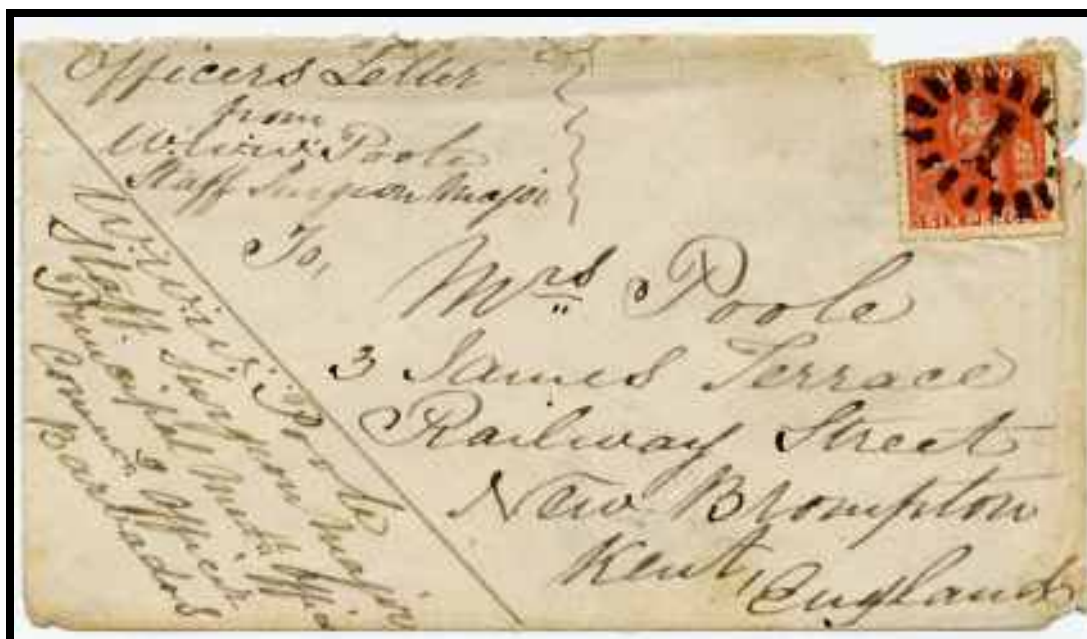 Officers Letter
from
Poole
Staff Surgeon Major
To,
Mrs Poole
3 James Terrace
Railway Street
New Brompton
Kent,
England
Poole
Staff Surgeon Major
Principal Officer
Officer
Barbados